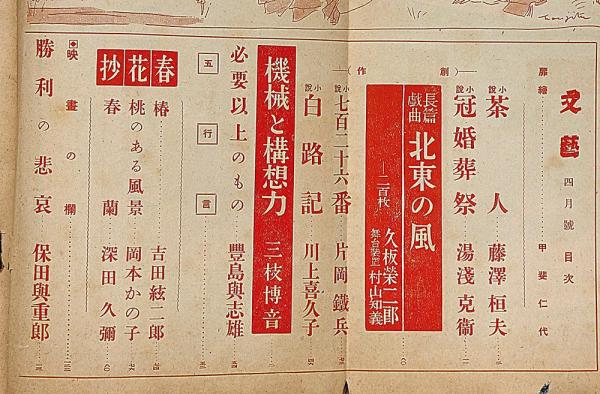 文藝 四月號 目次
扉繪 甲斐仁代
(創作)
小說 茶人 藤澤桓夫
小說 冠婚葬祭 湯淺克衞
長篇戲曲 北東の風 ―二百枚 久板榮二郎 舞台裝置 村山知義
小說 七百二十六番 片岡鐵兵
小說 白路記 川上喜久子
機械と構想力 三枝博音
必要以上のもの 豐島與志雄
五行言
春花抄
椿 吉田絃二郎
桃のある風景 岡本かの子
春蘭 深田久彌
映畫の欄
勝利の悲哀 保田與重郎